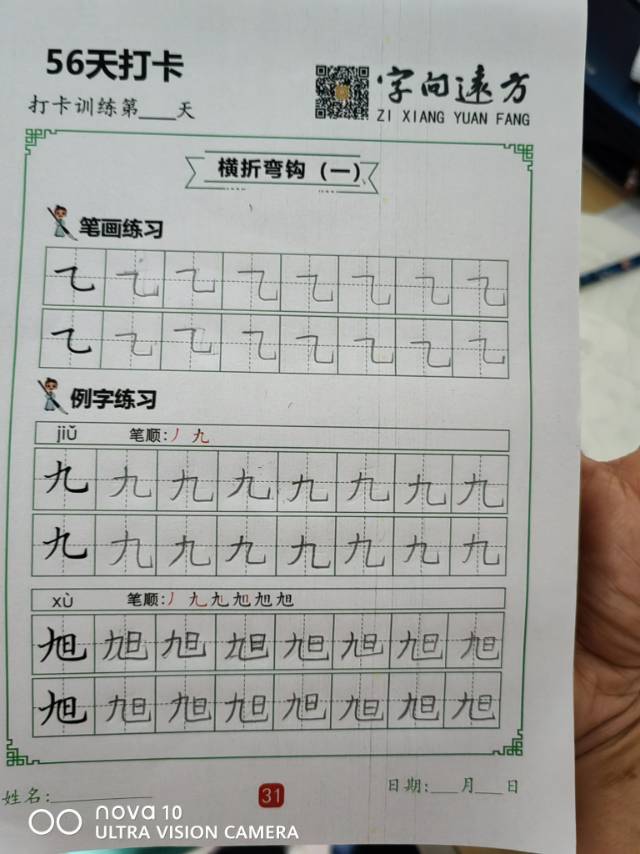 56天打卡
打卡训练第___天
字向远方
ZI XIANG YUAN FANG
横折弯钩（一）
笔画练习
㇈ ㇈ ㇈ ㇈ ㇈ ㇈ ㇈ ㇈
㇈ ㇈ ㇈ ㇈ ㇈ ㇈ ㇈ ㇈
例字练习
jiǔ 笔顺:丿 九
九 九 九 九 九 九 九 九
九 九 九 九 九 九 九 九
xù 笔顺:丿 九 九 旭 旭 旭
旭 旭 旭 旭 旭 旭 旭 旭
旭 旭 旭 旭 旭 旭 旭 旭
姓名:__________ 31 日期:___月___日
nova 10
ULTRA VISION CAMERA